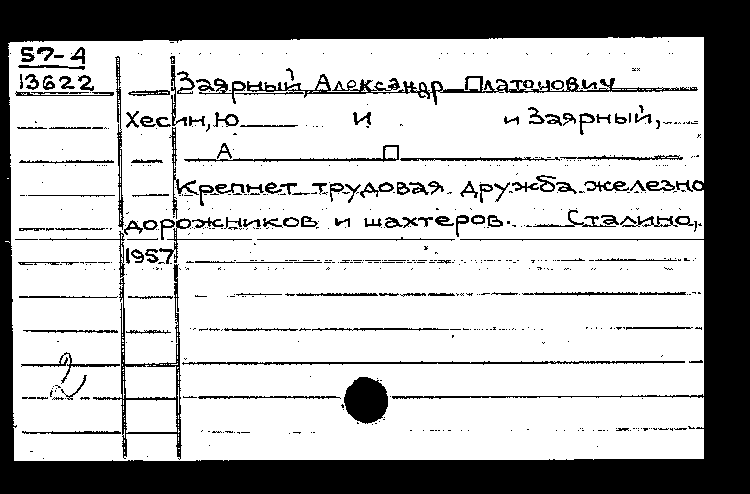 57-4
13622 Заярный, Александр Платонович
Хесин, Ю И и Заярный,
А П
Крепнет трудовая дружба железно
дорожников и шахтеров. Сталино,
1957
2